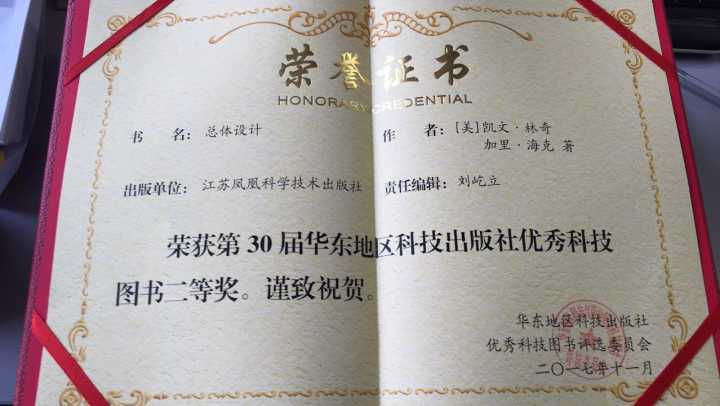 荣誉证书
HONORARY CREDENTIAL
书 名： 总体设计 作 者： [美]凯文·林奇
加里·海克 著
出版单位： 江苏凤凰科学技术出版社 责任编辑： 刘屹立
荣获第30届华东地区科技出版社优秀科技
图书二等奖。谨致祝贺。
华东地区科技出版社
优秀科技图书评选委员会
二〇一七年十一月